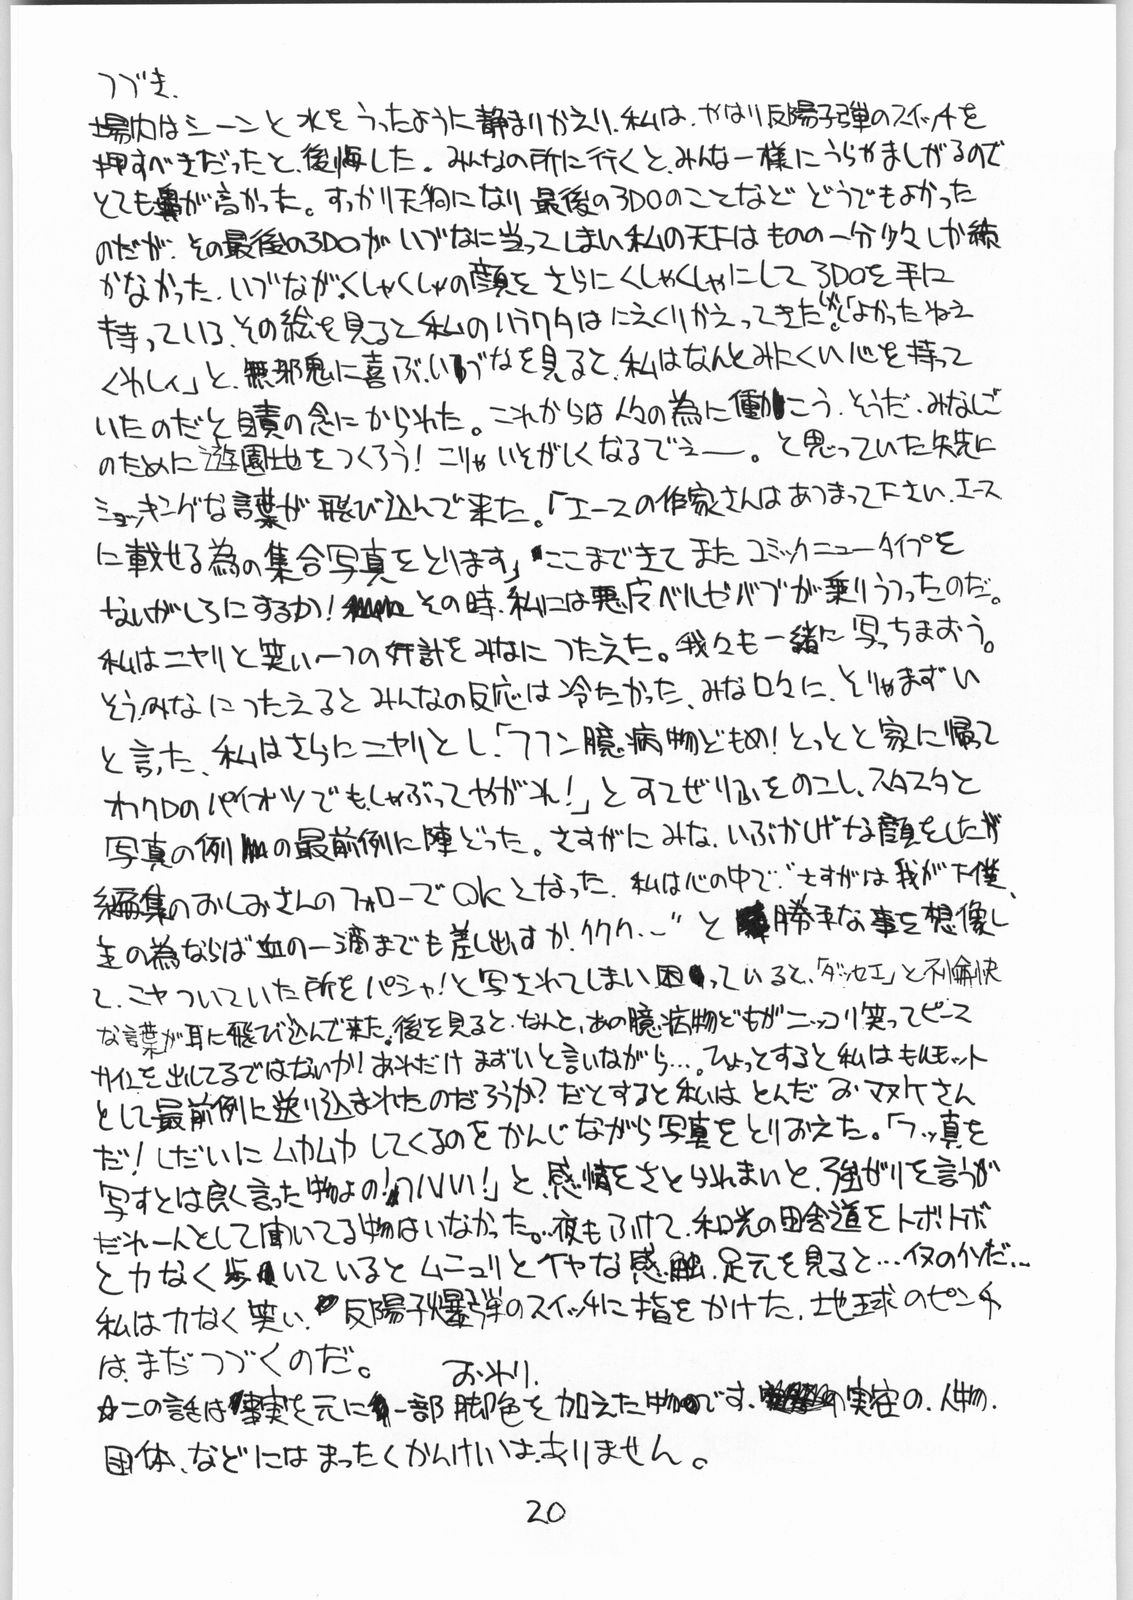 つづき.
場内はシーンと水をうったように静まりかえり、私は、やはり反陽子弾のスイッチを
押すべきだったと、後悔した。みんなの所に行くと、みんな一様にうらやましがるので
とても鼻が高かった。すっかり天狗になり最後の3DOのことなどどうでもよかった
のだが、その最後の3DOがいづなに当ってしまい私の天下はものの一分少々しか続
かなかった、いづながくしゃくしゃの顔をさらにくしゃくしゃにして3DOを手に
持っている、その絵を見ると私のハラワタはにえくりかえってきたが。「よかったねえ
くわしィ」と、無邪鬼に喜ぶ、いづなを見ると、私はなんとみにくい心を持って
いたのだと自責の念にかられた。これからは人々の為に働こう、そうだ、みなしご
のために遊園地をつくろう!こりゃいそがしくなるでぇー。と思っていた矢先に
ショッキングな言葉が飛び込んで来た。「エースの作家さんはあつまって下さい、エース
に載せる為の集合写真をとります」ここまできてまたコミックニュータイプを
ないがしろにするか!その時、私には悪魔ベルゼバブが乗りうつったのだ。
私はニヤリと笑い一つの奸計をみなにつたえた。我々も一緒に写っちまおう。
そうみなにつたえるとみんなの反応は冷たかった、みな口々に、そりゃまずい
と言った、私はさらにニヤリとし、「フフン臆病物どもめ!とっとと家に帰って
オクDのパイオツでもしゃぶってやがれ!」とすてぜりふをのこし、スタスタと
写真の例の最前例に陣どった。さすがにみな、いぶかしげな顔をしたが
編集のおしおさんのフォローでOKとなった、私は心の中で"さすがは我が下僕、
主の為ならば血の一滴までも差し出すか、ククク…"と勝手な事を想像し
て、ニヤついていた所をパシャ!と写されてしまい困っていると、「ダッセエ」と不愉快
な言葉が耳に飛び込んで来た。後を見ると、なんと、あの臆病物どもがニッコリ笑ってピース
サインを出してるではないか!あれだけまずいと言いながら…。ひょっとすると私はモルモット
として最前例に送り込まれたのだろうか?だとすると私はとんだおマヌケさん
だ!しだいにムカムカしてくるのをかんじながら写真をとりおえた。「フッ真を
写すとは良く言った物よの!ハハハ!」と、感情をさとられまいと、強がりを言うが
だれ一人として聞いてる物はいなかった。夜もふけて、和光の田舎道をトボトボ
と力なく歩いているとムニュリとイヤな感触、足元を見ると…イヌのクソだ…
私は力なく笑い、反陽子爆弾のスイッチに指をかけた、地球のピンチ
は、まだつづくのだ。
おわり.
☆この話は事実を元に一部脚色を加えた物です、実在の、人物、
団体、などにはまったくかんけいはありません。
20